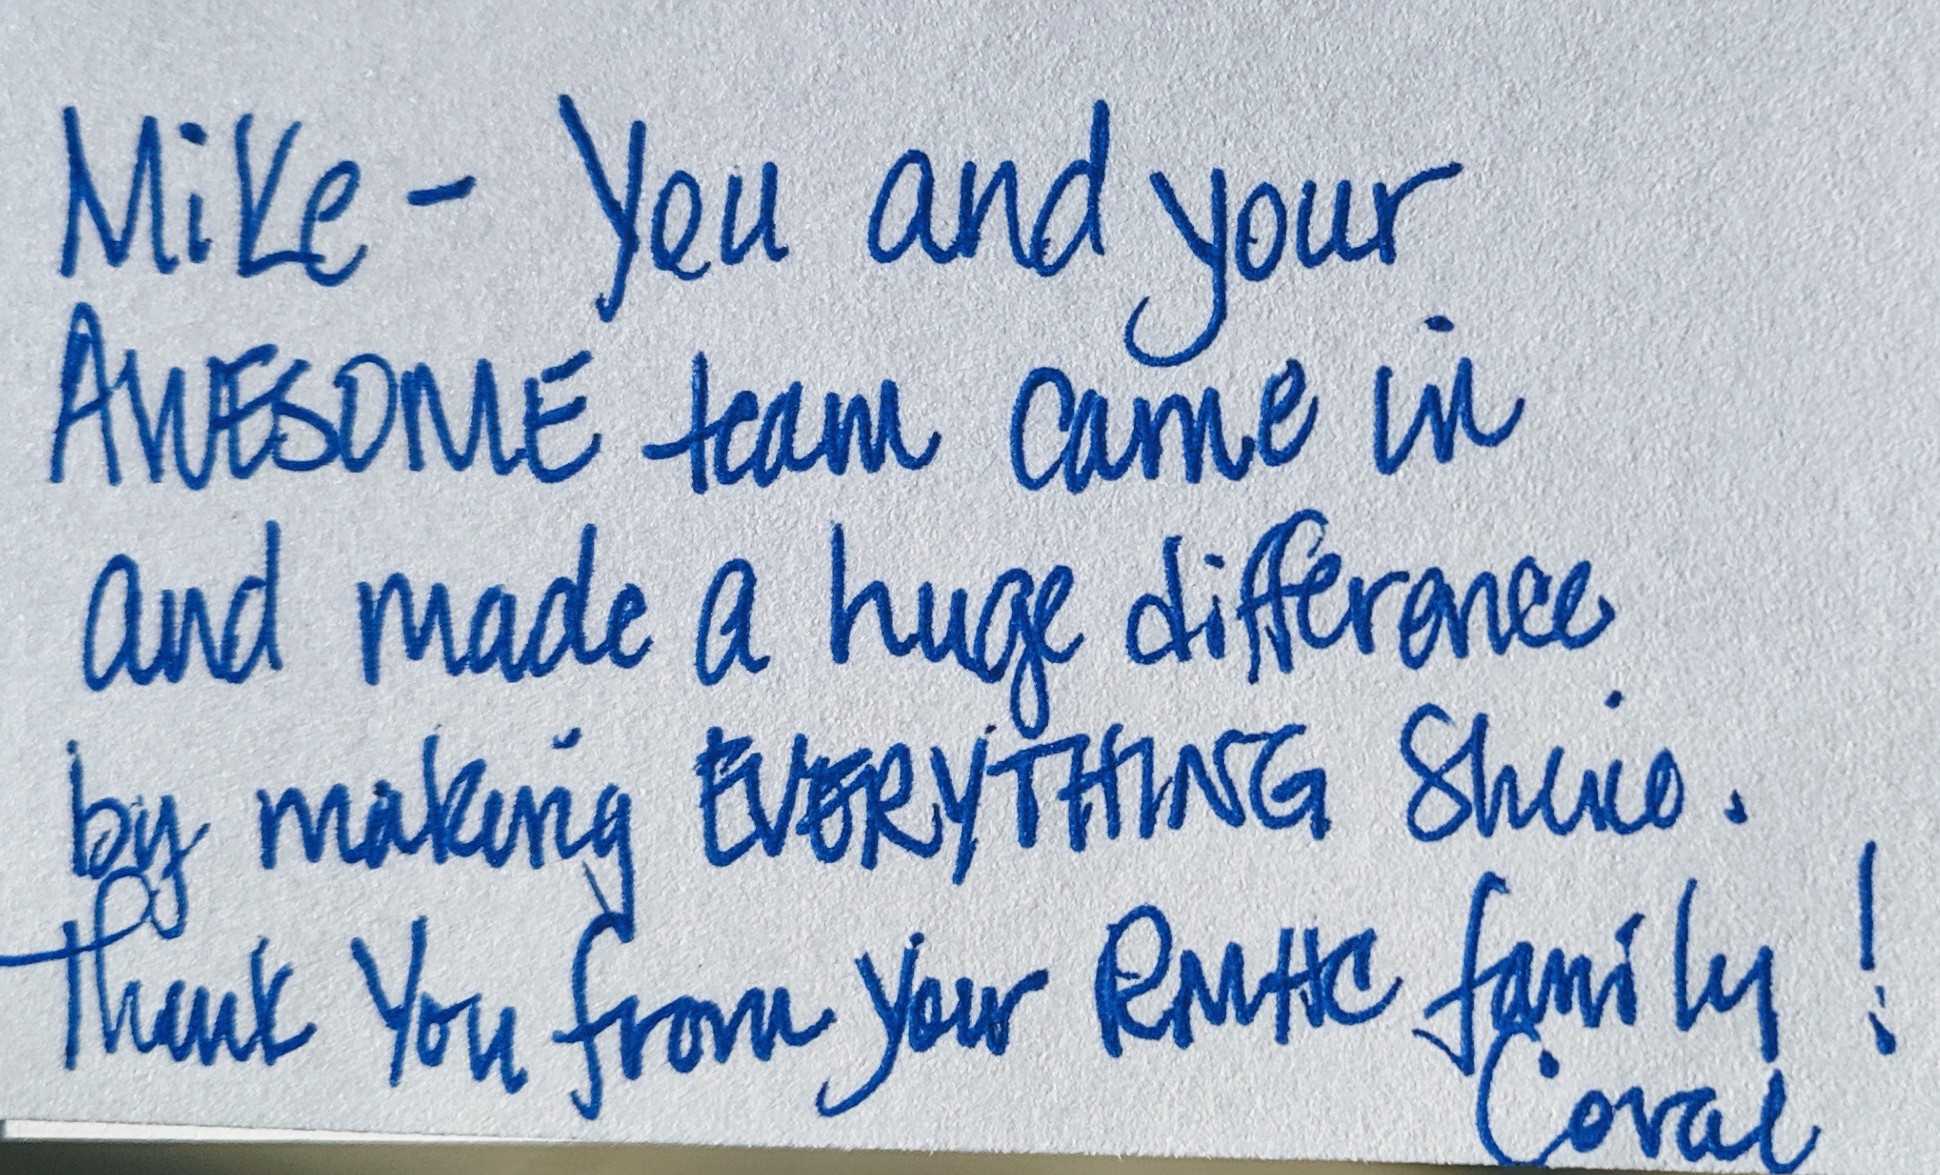 Mike - You and your
AWESOME team came in
and made a huge difference
by making EVERYTHING Shine.
Thank You from your RMHC family!
Coral